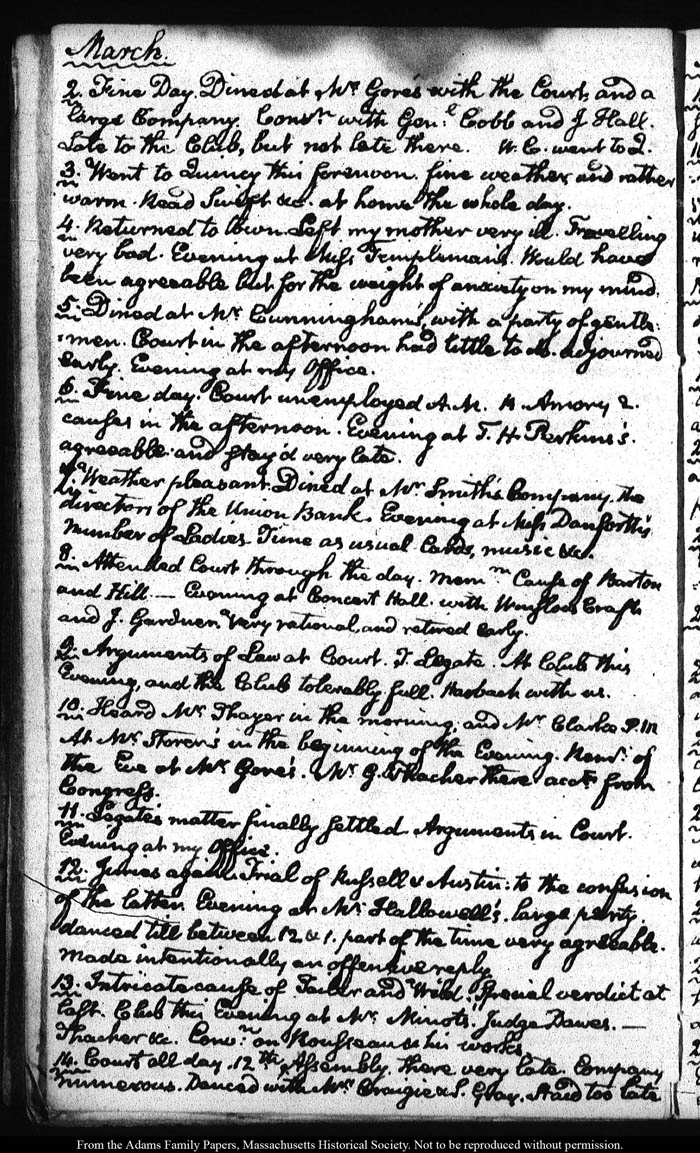 March.
2. Fine Day. Dined at Mr. Gore's with the Court, and a
large Company. Consn. with Genl. Cobb and J. Hall.
Late to the Club, but not late there. W. C. went to Q.
3. Went to Quincy this forenoon. fine weather, and rather
warm. Read Swift &c. at home the whole day.
4. Returned to town. Left my mother very ill. Travelling
very bad. Evening at Miss Templeman's. Would have
been agreeable but for the weight of anxiety on my mind.
5. Dined at Mr. Cunningham's, with a party of gentle:
:men. Court in the afternoon had little to do. adjourned
early. Evening at my Office.
6. Fine day. Court unemployed A.M. Amory 2.
causes in the afternoon. Evening at T. H. Perkins's.
agreeable: and stay'd very late.
7. Weather pleasant. Dined at Mr. Smith's. Company, the
directors of the Union Bank. Evening at Miss Danforth's
Number of Ladies. Time as usual. Cards, music &c.
8. Attended Court through the day. Cause of Barton
and Hill. — Evening at Concert Hall. with Winslow, Crafts
and J. Gardner. Very rational, and retired early.
9. Arguments of Law at Court. T. Legate. At Club this
Evening, and the Club tolerably full. with us.
10. Heard Mr. Thayer in the morning, and Mr. Clarke P.M.
At Mr. Storer's in the beginning of the Evening. Remr. of
the Eve at Mr. Gore's. Mr. G. Thacher there accts. from
Congress.
11. Legate's matter finally settled. Arguments in Court.
Evening at my Office.
12. Juries again. Trial of Russell & Austin: to the confusion
of the latter. Evening at Mr. Hallowell's. large party.
danced till between 12 & 1. part of the time very agreeable.
Made intentionally an offensive reply.
13. Intricate cause of and Wild. Special verdict at
last. Club this Evening at Mr. Minot's. Judge Dawes. —
Thacher &c. Convn. on Rousseau & his works
14. Court all day. 12th. Assembly. there very late. Company
numerous. Danced with Mrs. Craigie & S. Gray. Staid too late
From the Adams Family Papers, Massachusetts Historical Society. Not to be reproduced without permission.